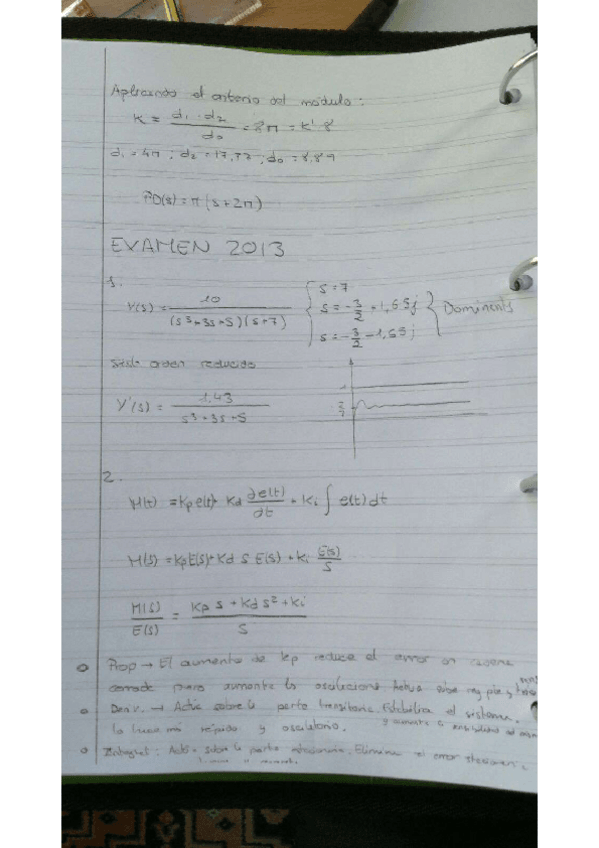 Aplicando el criterio del módulo:
K = d₁ · d₂ / d₀ = 2π = K' 8
d₁ = 4π ; d₂ = 17,77 ; d₀ = 8,89
PD(s) = π (s + 2π)
EXAMEN 2013
1.
Y(s) = 10 / (s³ + 3s + 5)(s + 7) { s = 7
s = -3/2 + 1,65j
s = -3/2 - 1,65j } Dominants
orden reducido
Y'(s) = 1,43 / s³ + 3s + 5
1
2/7
2.
M(t) = Kp e(t) + Kd ∂e(t)/dt + Ki ∫ e(t) dt
M(s) = Kp E(s) + Kd S E(s) + Ki E(s)/S
M(s)/E(s) = Kp s + Kd s² + Ki / S
Prop → El aumento de kp reduce el error en cadena
pero aumenta la oscilaciones Actua sobre reg pte y
Deriv. → Actua sobre la parte transitoria. Estabiliza el sistema.
lo hace más rápido y oscilatorio. y aumenta la sensibilidad al
Integral: Actua sobre la parte estacionaria. Elimina el error